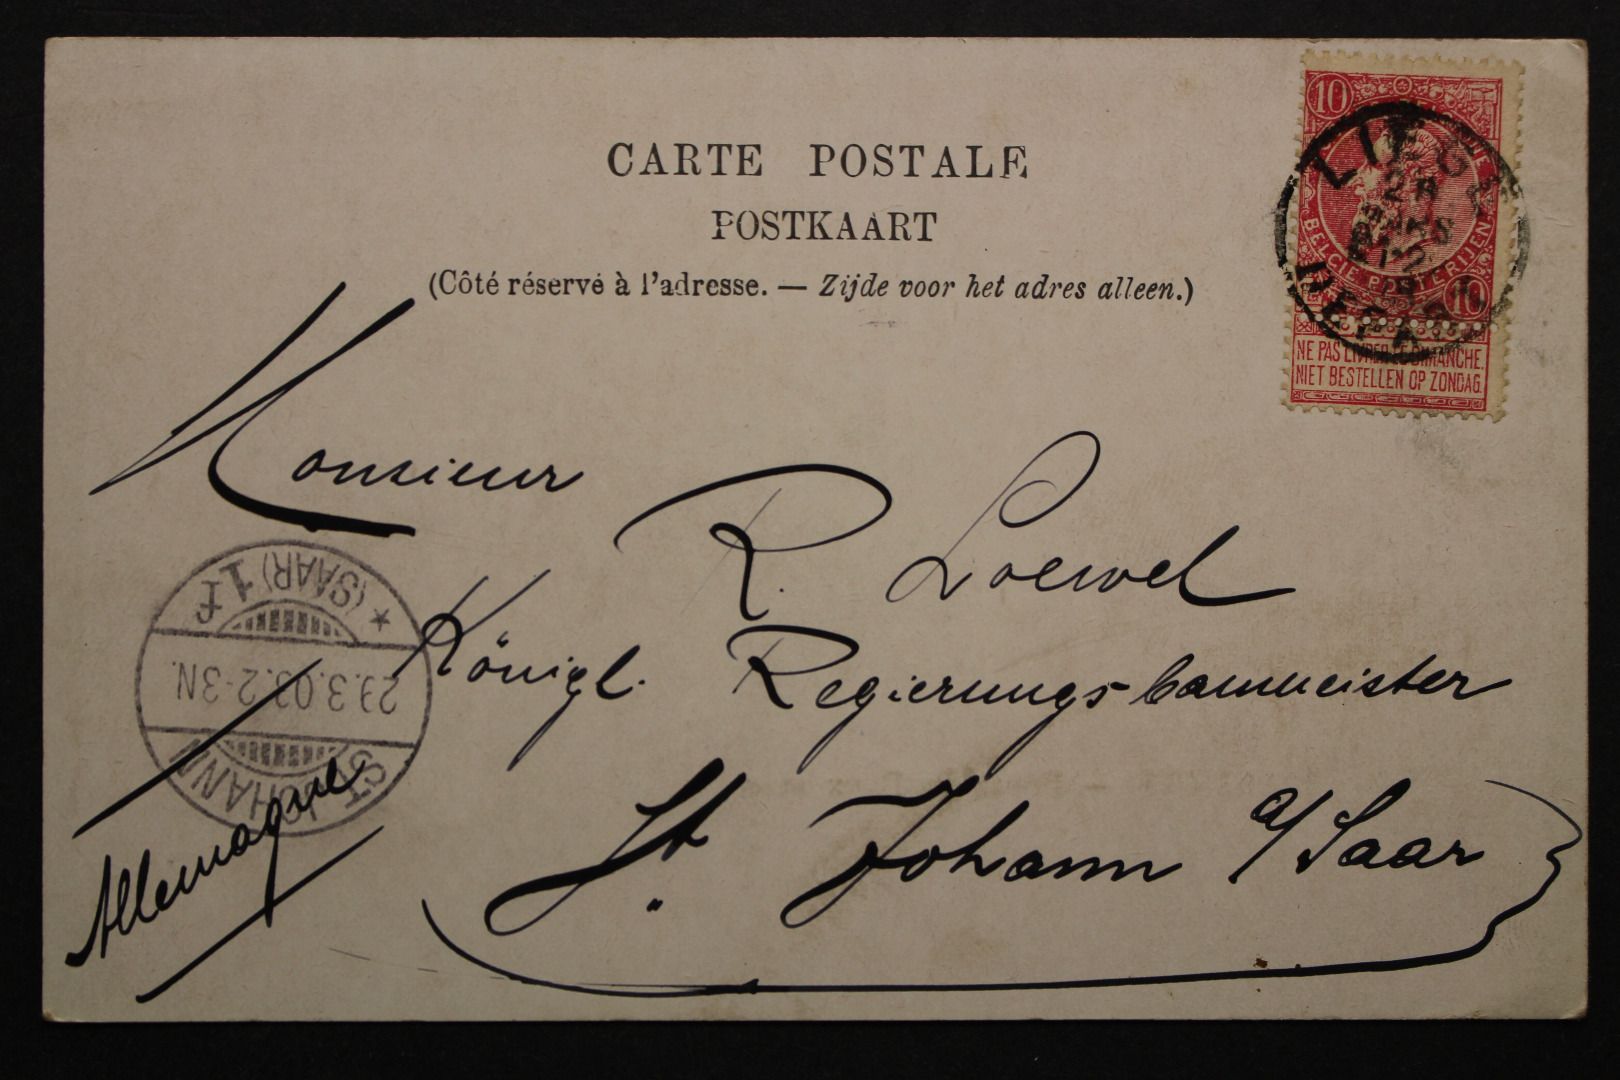 CARTE POSTALE
POSTKAART
(Côté réservé à l'adresse. — Zijde voor het adres alleen.)
10
BELGIE POSTERIJEN
10
NE PAS LIVRER LE DIMANCHE.
NIET BESTELLEN OP ZONDAG.
LIEGE
MARS
DEPART
Monsieur
R. Loewel
Königl. Regierungsbaumeister
St. Johann a/Saar
Allemagne
ST. JOHANN
29.3.03.2-3N.
* (SAAR) 1 f